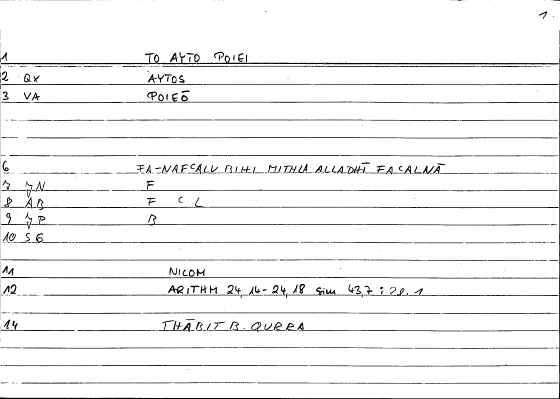 1.
1 TO AYTO POIEI
2 QX AYTOS
3 VA POIEŌ
6 FA-NAFᶜALU BIHI MITHLA ALLADHĪ FAᶜALNĀ
7 JN F
8 AB F ᶜ L
9 JP B
10 SG
11 NICOM
12 ARITHM 24,14-24,18 sim 43,7 ; 28.1
14 THĀBIT B. QURRA